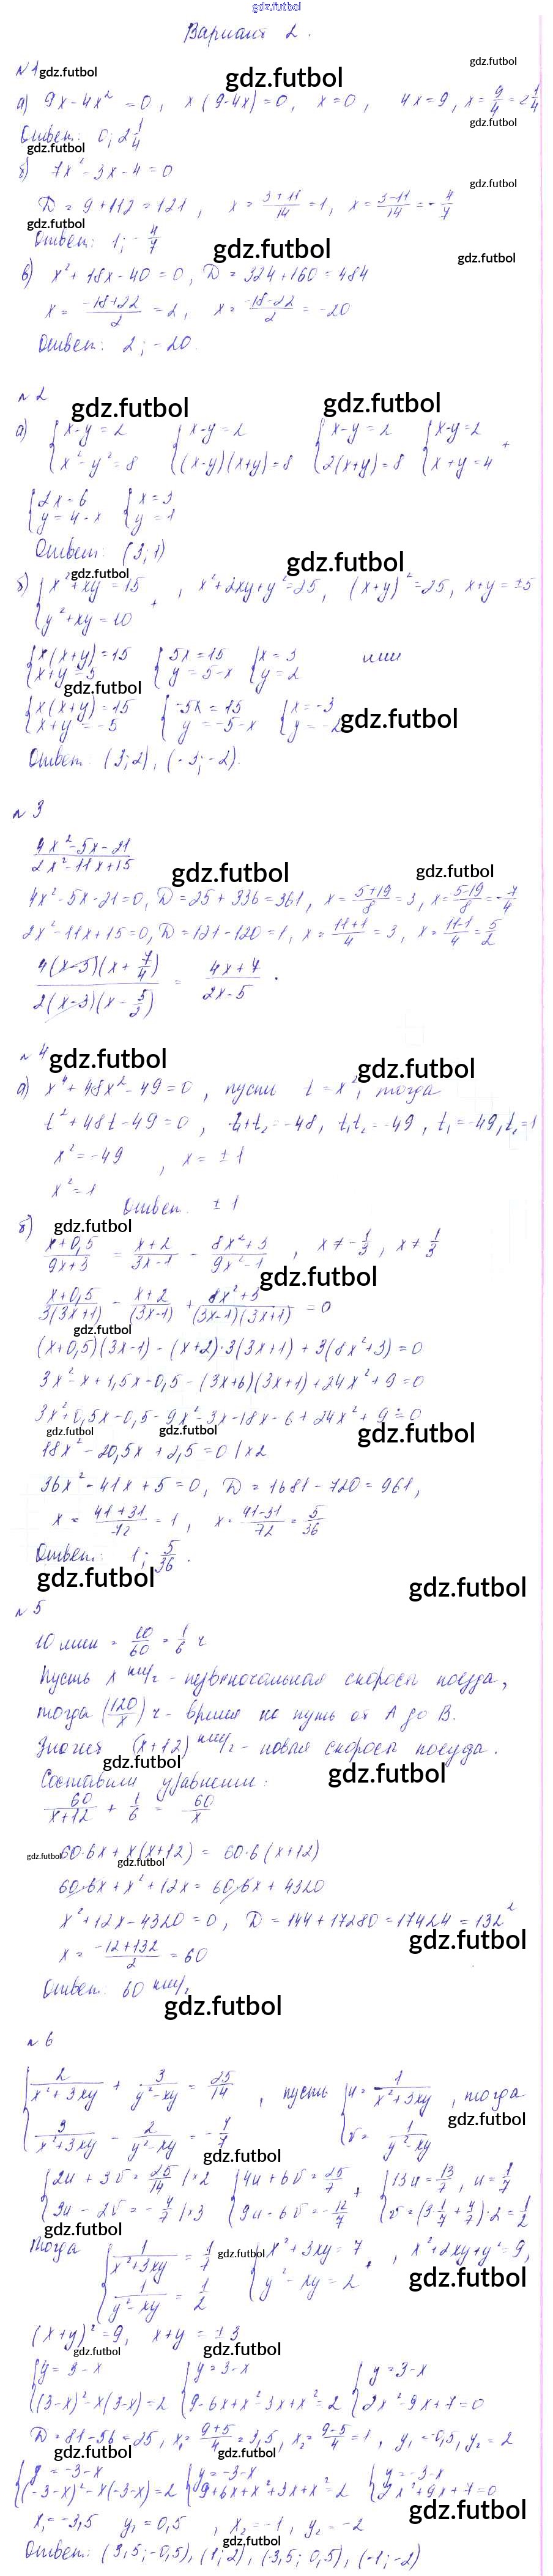 gdz.futbol
Вариант 2.
№1 gdz.futbol gdz.futbol gdz.futbol
а) 9x - 4x² = 0, x(9-4x) = 0, x = 0, 4x = 9, x = 9/4 = 2 1/4
gdz.futbol
Ответ: 0; 2 1/4
gdz.futbol
б) 7x² - 3x - 4 = 0
gdz.futbol
D = 9 + 112 = 121, x = (3+11)/14 = 1, x = (3-11)/14 = -4/7
gdz.futbol
Ответ: 1; -4/7
gdz.futbol gdz.futbol
в) x² + 18x - 40 = 0, D = 324 + 160 = 484
x = (-18+22)/2 = 2, x = (-18-22)/2 = -20
Ответ: 2; -20.
№2
gdz.futbol gdz.futbol
а) {x-y = 2 {x-y = 2 {x-y = 2 {x-y = 2 +
{x² - y² = 8 {(x-y)(x+y) = 8 {2(x+y) = 8 {x+y = 4
{2x = 6 {x = 3
{y = 4-x {y = 1
Ответ: (3; 1)
gdz.futbol gdz.futbol
б) {x² + xy = 15 + , x² + 2xy + y² = 25, (x+y)² = 25, x+y = ±5
{y² + xy = 10
{x(x+y) = 15 {5x = 15 {x = 3 или
{x+y = 5 {y = 5-x {y = 2
gdz.futbol
{x(x+y) = 15 {-5x = 15 {x = -3
{x+y = -5 {y = -5-x {y = -2 gdz.futbol
Ответ: (3; 2), (-3; -2).
№3
(4x² - 5x - 21)/(2x² - 11x + 15)
gdz.futbol gdz.futbol
4x² - 5x - 21 = 0, D = 25 + 336 = 361, x = (5+19)/8 = 3, x = (5-19)/8 = -7/4
2x² - 11x + 15 = 0, D = 121 - 120 = 1, x = (11+1)/4 = 3, x = (11-1)/4 = 5/2
4(x-3)(x + 7/4)/2(x-3)(x - 5/2) = (4x+7)/(2x-5).
№4 gdz.futbol gdz.futbol
а) x⁴ + 48x² - 49 = 0, пусть t = x², тогда
t² + 48t - 49 = 0, t₁+t₂ = -48, t₁t₂ = -49, t₁ = -49, t₂ = 1
x² = -49, x = ±1
x² = 1
Ответ. ±1
gdz.futbol
б) (x+0,5)/(9x+3) = (x+2)/(3x-1) - (8x²+3)/(9x²-1), x ≠ -1/3, x ≠ 1/3
gdz.futbol
(x+0,5)/3(3x+1) - (x+2)/(3x-1) + (8x²+3)/(3x-1)(3x+1) = 0
gdz.futbol
(x+0,5)(3x-1) - (x+2)·3(3x+1) + 3(8x²+3) = 0
3x² - x + 1,5x - 0,5 - (3x+6)(3x+1) + 24x² + 9 = 0
3x² + 0,5x - 0,5 - 9x² - 3x - 18x - 6 + 24x² + 9 = 0
gdz.futbol gdz.futbol gdz.futbol
18x² - 20,5x + 2,5 = 0 | x2
36x² - 41x + 5 = 0, D = 1681 - 720 = 961,
x = (41+31)/72 = 1, x = (41-31)/72 = 5/36
Ответ: 1; 5/36.
gdz.futbol gdz.futbol
№5
10 мин = 10/60 = 1/6 ч
Пусть x км/ч - первоначальная скорость поезда,
тогда (120/x) ч - время на путь от А до В.
Значит (x+12) км/ч - новая скорость поезда.
gdz.futbol gdz.futbol
Составим уравнение:
60/(x+12) + 1/6 = 60/x
gdz.futbol 60·6x + x(x+12) = 60·6(x+12)
gdz.futbol
60·6x + x² + 12x = 60·6x + 4320
x² + 12x - 4320 = 0, D = 144 + 17280 = 17424 = 132²
gdz.futbol
x = (-12+132)/2 = 60
Ответ: 60 км/ч
gdz.futbol
№6
{2/(x²+3xy) + 3/(y²-xy) = 25/14, пусть {u = 1/(x²+3xy), тогда
gdz.futbol
{3/(x²+3xy) - 2/(y²-xy) = -4/7 {v = 1/(y²-xy)
gdz.futbol
{2u + 3v = 25/14 | x2 {4u + 6v = 25/7 + {13u = 13/7, u = 1/7
{3u - 2v = -4/7 | x3 {9u - 6v = -12/7 {v = (3 1/7 + 4/7)·2 = 1/2
gdz.futbol
Тогда {1/(x²+3xy) = 1/7 gdz.futbol {x² + 3xy = 7 +, x² + 2xy + y² = 9,
{1/(y²-xy) = 1/2 {y² - xy = 2 gdz.futbol
(x+y)² = 9, x+y = ±3
gdz.futbol gdz.futbol
{y = 3-x {y = 3-x {y = 3-x
{(3-x)² - x(3-x) = 2 {9 - 6x + x² - 3x + x² = 2 {2x² - 9x + 7 = 0
D = 81 - 56 = 25, x₁ = (9+5)/4 = 3,5, x₂ = (9-5)/4 = 1, y₁ = -0,5, y₂ = 2
gdz.futbol gdz.futbol
{y = -3-x {y = -3-x {y = -3-x
{(-3-x)² - x(-3-x) = 2 {9 + 6x + x² + 3x + x² = 2 {2x² + 9x + 7 = 0
gdz.futbol
x₁ = -3,5 y₁ = 0,5, x₂ = -1, y₂ = -2
gdz.futbol
Ответ: (3,5; -0,5), (1; 2), (-3,5; 0,5), (-1; -2)